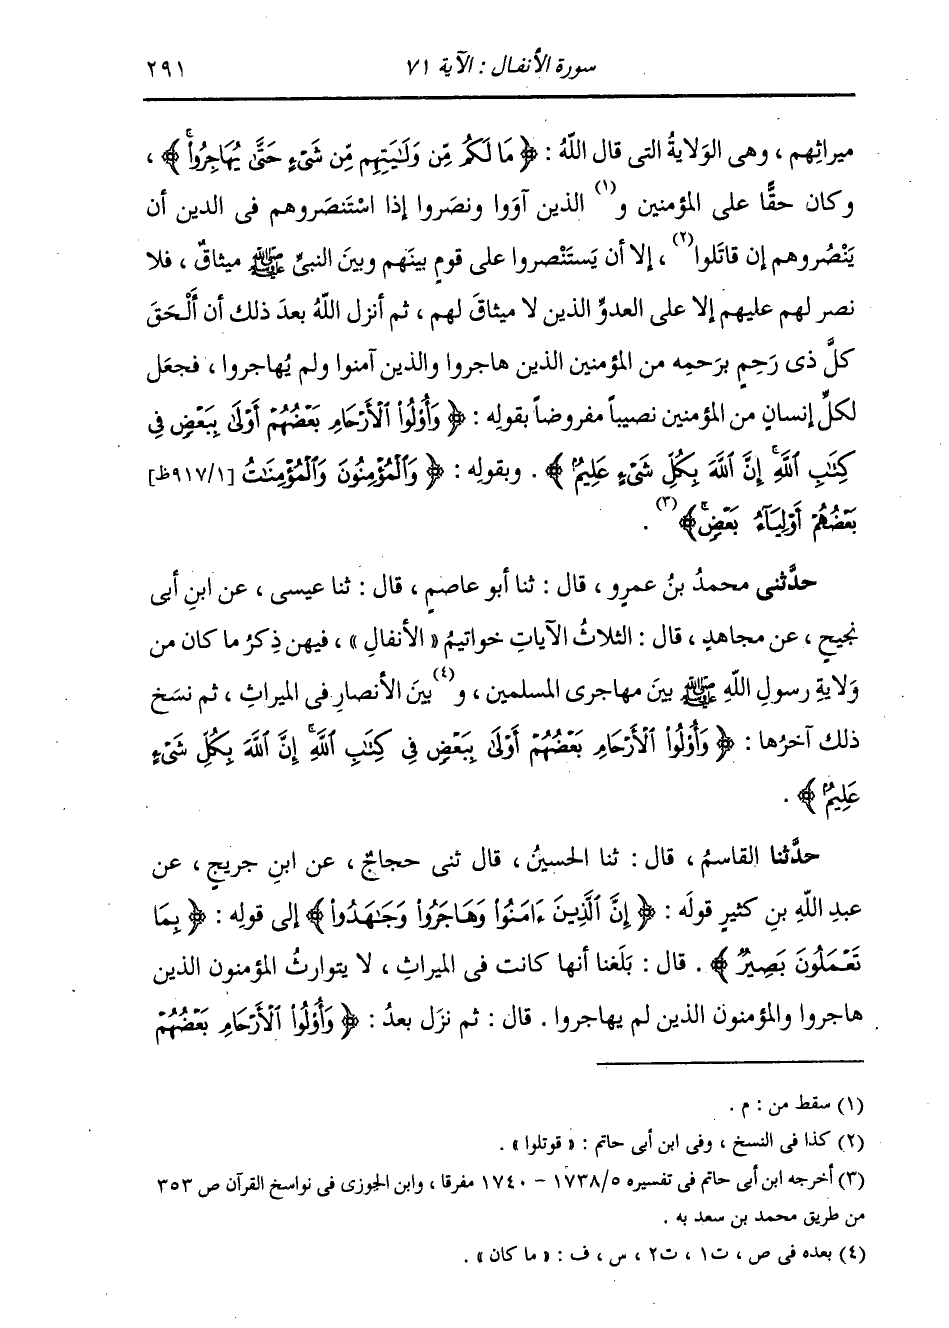 سورة الأنفال : الآية ٧١
٢٩١
ميراثِهم ، وهى الوَلايةُ التى قال اللَّهُ : ﴿ مَا لَكُم مِّن وَلَٰيَتِهِم مِّن شَىْءٍ حَتَّىٰ يُهَاجِرُوا۟ۚ ﴾ ،
وكان حقًّا على المؤمنين و(١) الذين آوَوا ونصَروا إذا اسْتَنصَروهم فى الدين أن
يَنْصُروهم إن قاتَلوا(٢) ، إلا أن يَستَنْصروا على قومٍ بينَهم وبينَ النبىِّ ﷺ ميثاقٌ ، فلا
نصر لهم عليهم إلا على العدوِّ الذين لا ميثاقَ لهم ، ثم أنزل اللَّهُ بعدَ ذلك أن أَلْحَقَ
كلَّ ذى رَحِمٍ برَحمِه من المؤمنين الذين هاجروا والذين آمنوا ولم يُهاجروا ، فجعَل
لكلِّ إنسانٍ من المؤمنين نصيباً مفروضاً بقولِه : ﴿ وَأُو۟لُوا۟ ٱلْأَرْحَامِ بَعْضُهُمْ أَوْلَىٰ بِبَعْضٍ فِى
كِتَٰبِ ٱللَّهِۚ إِنَّ ٱللَّهَ بِكُلِّ شَىْءٍ عَلِيمٌۢ ﴾ . وبقولِه : ﴿ وَٱلْمُؤْمِنُونَ وَٱلْمُؤْمِنَٰتُ [٩١٧/١ظ]
بَعْضُهُمْ أَوْلِيَآءُ بَعْضٍۚ ﴾(٣) .
حدَّثنى محمدُ بنُ عمرٍو ، قال : ثنا أبو عاصمٍ ، قال : ثنا عيسى ، عن ابنِ أبى
نجيحٍ ، عن مجاهدٍ ، قال : الثلاثُ الآياتِ خواتيمُ « الأنفالِ » ، فيهن ذِكرُ ما كان من
وَلايةِ رسولِ اللَّهِ ﷺ بينَ مهاجرى المسلمين ، و(٤) بينَ الأنصارِ فى الميراثِ ، ثم نسَخ
ذلك آخرُها : ﴿ وَأُو۟لُوا۟ ٱلْأَرْحَامِ بَعْضُهُمْ أَوْلَىٰ بِبَعْضٍ فِى كِتَٰبِ ٱللَّهِۚ إِنَّ ٱللَّهَ بِكُلِّ شَىْءٍ
عَلِيمٌۢ ﴾ .
حدَّثنا القاسمُ ، قال : ثنا الحسينُ ، قال ثنى حجاجٌ ، عن ابنِ جريجٍ ، عن
عبدِ اللَّهِ بنِ كثيرٍ قولَه : ﴿ إِنَّ ٱلَّذِينَ ءَامَنُوا۟ وَهَاجَرُوا۟ وَجَٰهَدُوا۟ ﴾ إلى قولِه : ﴿ بِمَا
تَعْمَلُونَ بَصِيرٌ ﴾ . قال : بَلَغنا أنها كانت فى الميراثِ ، لا يتوارثُ المؤمنون الذين
هاجروا والمؤمنون الذين لم يهاجروا . قال : ثم نزَل بعدُ : ﴿ وَأُو۟لُوا۟ ٱلْأَرْحَامِ بَعْضُهُمْ
(١) سقط من : م .
(٢) كذا فى النسخ ، وفى ابن أبى حاتم : « قوتلوا » .
(٣) أخرجه ابن أبى حاتم فى تفسيره ١٧٣٨/٥ - ١٧٤٠ مفرقا ، وابن الجوزى فى نواسخ القرآن ص ٣٥٣
من طريق محمد بن سعد به .
(٤) بعده فى ص ، ت١ ، ت٢ ، س ، ف : « ما كان » .